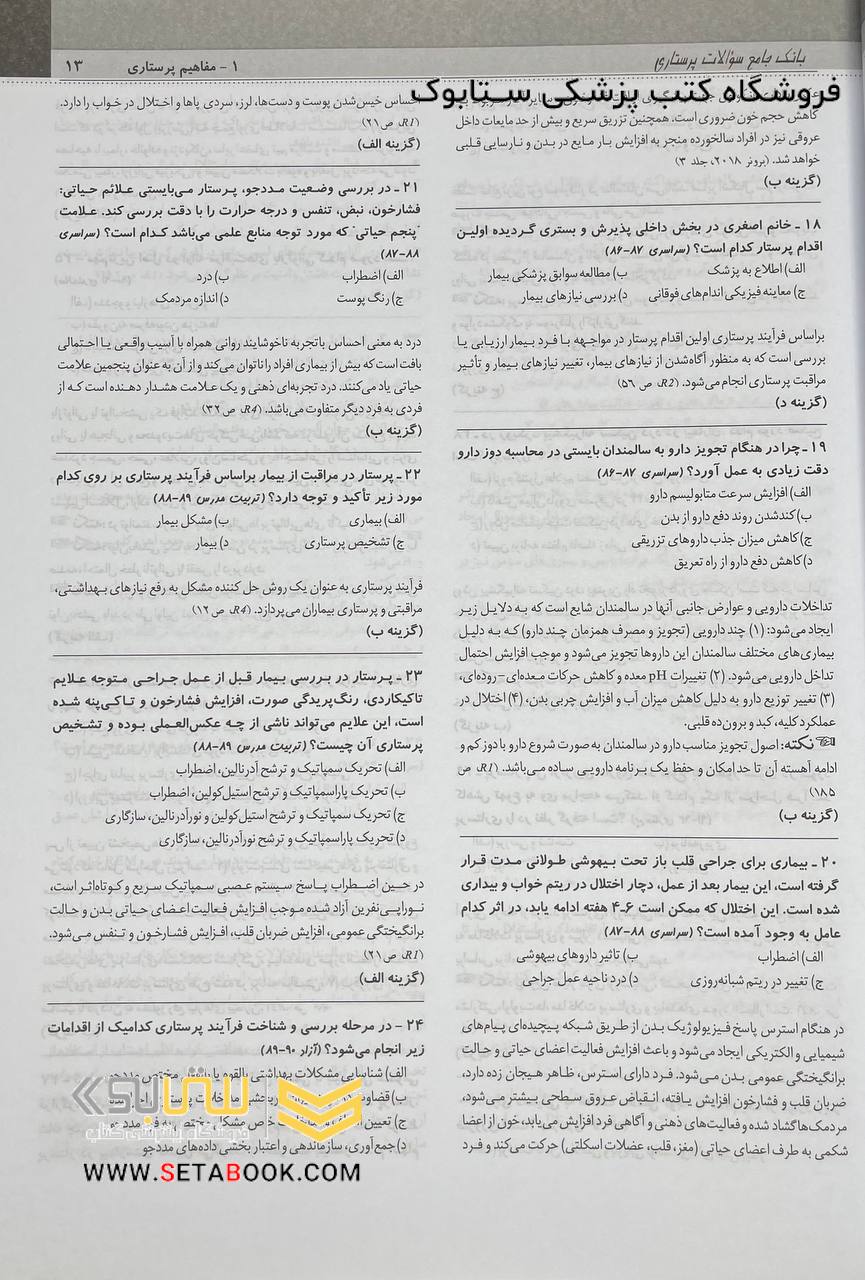 بانک جامع سؤالات پرستاری
۱ - مفاهیم پرستاری
۱۳
فروشگاه کتب پزشکی ستابوک
کاهش حجم خون ضروری است. همچنین تزریق سریع و بیش از حد مایعات داخل
عروقی نیز در افراد سالخورده منجر به افزایش بار مایع در بدن و نارسایی قلبی
خواهد شد. (برونر ۲۰۱۸، جلد ۳)
(گزینه ب)
۱۸ ـ خانم اصغری در بخش داخلی پذیرش و بستری گردیده اولین
اقدام پرستار کدام است؟ (سراسری ۸۷-۸۶)
الف) اطلاع به پزشک
ب) مطالعه سوابق پزشکی بیمار
ج) معاینه فیزیکی اندام‌های فوقانی
د) بررسی نیازهای بیمار
براساس فرآیند پرستاری اولین اقدام پرستار در مواجهه با فرد بیمار ارزیابی یا
بررسی است که به منظور آگاه‌شدن از نیازهای بیمار، تغییر نیازهای بیمار و تأثیر
مراقبت پرستاری انجام می‌شود. (R2، ص ۵۶)
(گزینه د)
۱۹ ـ چرا در هنگام تجویز دارو به سالمندان بایستی در محاسبه دوز دارو
دقت زیادی به عمل آورد؟ (سراسری ۸۷-۸۶)
الف) افزایش سرعت متابولیسم دارو
ب) کندشدن روند دفع دارو از بدن
ج) کاهش میزان جذب داروهای تزریقی
د) کاهش دفع دارو از راه تعریق
تداخلات دارویی و عوارض جانبی آنها در سالمندان شایع است که به دلایل زیر
ایجاد می‌شود: (۱) چند دارویی (تجویز و مصرف همزمان چند دارو) که به دلیل
بیماری‌های مختلف سالمندان این داروها تجویز می‌شود و موجب افزایش احتمال
تداخل دارویی می‌شود. (۲) تغییرات pH معده و کاهش حرکات معده‌ای-روده‌ای،
(۳) تغییر توزیع دارو به دلیل کاهش میزان آب و افزایش چربی بدن، (۴) اختلال در
عملکرد کلیه، کبد و برون‌ده قلبی.
نکته: اصول تجویز مناسب دارو در سالمندان به صورت شروع دارو با دوز کم و
ادامه آهسته آن تا حد امکان و حفظ یک برنامه دارویی ساده می‌باشد. (R1، ص
۱۸۵)
(گزینه ب)
۲۰ ـ بیماری برای جراحی قلب باز تحت بیهوشی طولانی مدت قرار
گرفته است، این بیمار بعد از عمل، دچار اختلال در ریتم خواب و بیداری
شده است. این اختلال که ممکن است ۶-۴ هفته ادامه یابد، در اثر کدام
عامل به وجود آمده است؟ (سراسری ۸۸-۸۷)
الف) اضطراب
ب) تاثیر داروهای بیهوشی
ج) تغییر در ریتم شبانه‌روزی
د) درد ناحیه عمل جراحی
در هنگام استرس پاسخ فیزیولوژیک بدن از طریق شبکه پیچیده‌ای پیام‌های
شیمیایی و الکتریکی ایجاد می‌شود و باعث افزایش فعالیت اعضای حیاتی و حالت
برانگیختگی عمومی بدن می‌شود. فرد دارای استرس، ظاهر هیجان زده دارد،
ضربان قلب و فشارخون افزایش یافته، انقباض عروق سطحی بیشتر می‌شود،
مردمک‌ها گشاد شده و فعالیت‌های ذهنی و آگاهی فرد افزایش می‌یابد، خون از اعضا
شکمی به طرف اعضای حیاتی (مغز، قلب، عضلات اسکلتی) حرکت می‌کند و فرد
احساس خیس‌شدن پوست و دست‌ها، لرز، سردی پاها و اختلال در خواب را دارد.
(R1، ص ۲۱)
(گزینه الف)
۲۱ ـ در بررسی وضعیت مددجو، پرستار می‌بایستی علائم حیاتی:
فشارخون، نبض، تنفس و درجه حرارت را با دقت بررسی کند. علامت
"پنجم حیاتی" که مورد توجه منابع علمی می‌باشد کدام است؟ (سراسری
۸۸-۸۷)
الف) اضطراب
ب) درد
ج) رنگ پوست
د) اندازه مردمک
درد به معنی احساس با تجربه ناخوشایند روانی همراه با آسیب واقعی یا احتمالی
بافت است که بیش از بیماری افراد را ناتوان می‌کند و از آن به عنوان پنجمین علامت
حیاتی یاد می‌کنند. درد تجربه‌ای ذهنی و یک علامت هشدار دهنده است که از
فردی به فرد دیگر متفاوت می‌باشد. (R4، ص ۳۲)
(گزینه ب)
۲۲ ـ پرستار در مراقبت از بیمار براساس فرآیند پرستاری بر روی کدام
مورد زیر تأکید و توجه دارد؟ (تربیت مدرس ۸۹-۸۸)
الف) بیماری
ب) مشکل بیمار
ج) تشخیص پرستاری
د) بیمار
فرآیند پرستاری به عنوان یک روش حل کننده مشکل به رفع نیازهای بهداشتی،
مراقبتی و پرستاری بیماران می‌پردازد. (R4، ص ۱۲)
(گزینه ب)
۲۳ ـ پرستار در بررسی بیمار قبل از عمل جراحی متوجه علایم
تاکیکاردی، رنگ‌پریدگی صورت، افزایش فشارخون و تاکی‌پنه شده
است، این علایم می‌تواند ناشی از چه عکس‌العملی بوده و تشخیص
پرستاری آن چیست؟ (تربیت مدرس ۸۹-۸۸)
الف) تحریک سمپاتیک و ترشح آدرنالین، اضطراب
ب) تحریک پاراسمپاتیک و ترشح استیل‌کولین، اضطراب
ج) تحریک سمپاتیک و ترشح استیل‌کولین و نورآدرنالین، سازگاری
د) تحریک پاراسمپاتیک و ترشح نورآدرنالین، سازگاری
در حین اضطراب پاسخ سیستم عصبی سمپاتیک سریع و کوتاه‌اثر است،
نوراپی‌نفرین آزاد شده موجب افزایش فعالیت اعضای حیاتی بدن و حالت
برانگیختگی عمومی، افزایش ضربان قلب، افزایش فشارخون و تنفس می‌شود.
(R1، ص ۲۱)
(گزینه الف)
۲۴ - در مرحله بررسی و شناخت فرآیند پرستاری کدامیک از اقدامات
زیر انجام می‌شود؟ (آزاد ۹۰-۸۹)
الف) شناسایی مشکلات بهداشتی بالقوه یا بالفعل مختص مددجو
ب) قضاوت
ج) تعیین
د) جمع‌آوری، سازماندهی و اعتبار بخشی داده‌های مددجو
ستابوک
فروشگاه اینترنتی کتاب
WWW.SETABOOK.COM